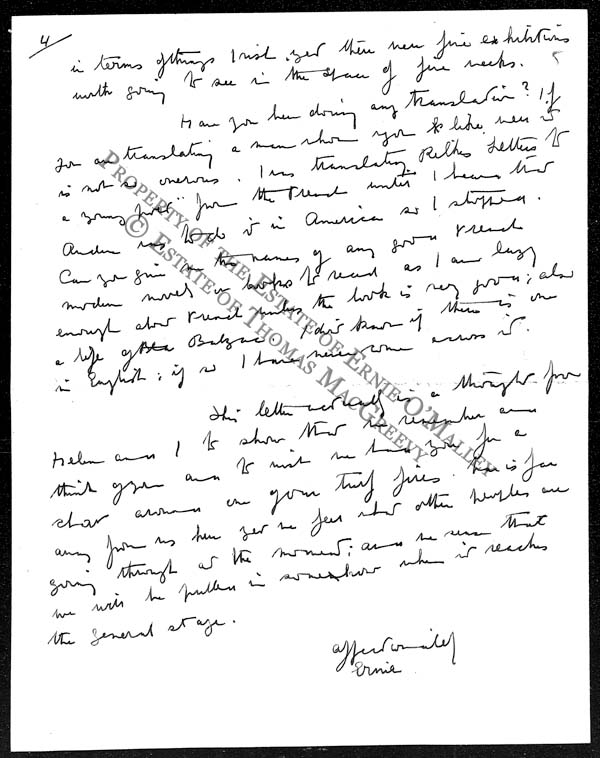 4
in terms of things Irish, yet there were five exhibitions
worth going to see in the space of five weeks.
Have you been doing any translation? If
you are translating a man whom you like well it
is not so onerous. I was translating Rilkes Letters to
a young poet" from the French until I heard that
was to do it in America so I stopped.
Can you give me the names of any good French
modern novels or books to read as I am lazy
enough about French unless the book is very good; also
a life of Balzac. I don't know if there is one
in English; if so I have never come across it.
This letter actually is a thought from
Helen and I to show that we remember and
think of you and to wish we had you for a
chat around one of our turf fires. War is far
away from us here yet we feel what other peoples are
going through at the moment; and we sense that
we will be pulled in somehow when it reaches
the general stage.
Affectionately
Ernie
Property of the Estate of Ernie O'Malley
© Estate of Thomas MacGreevy